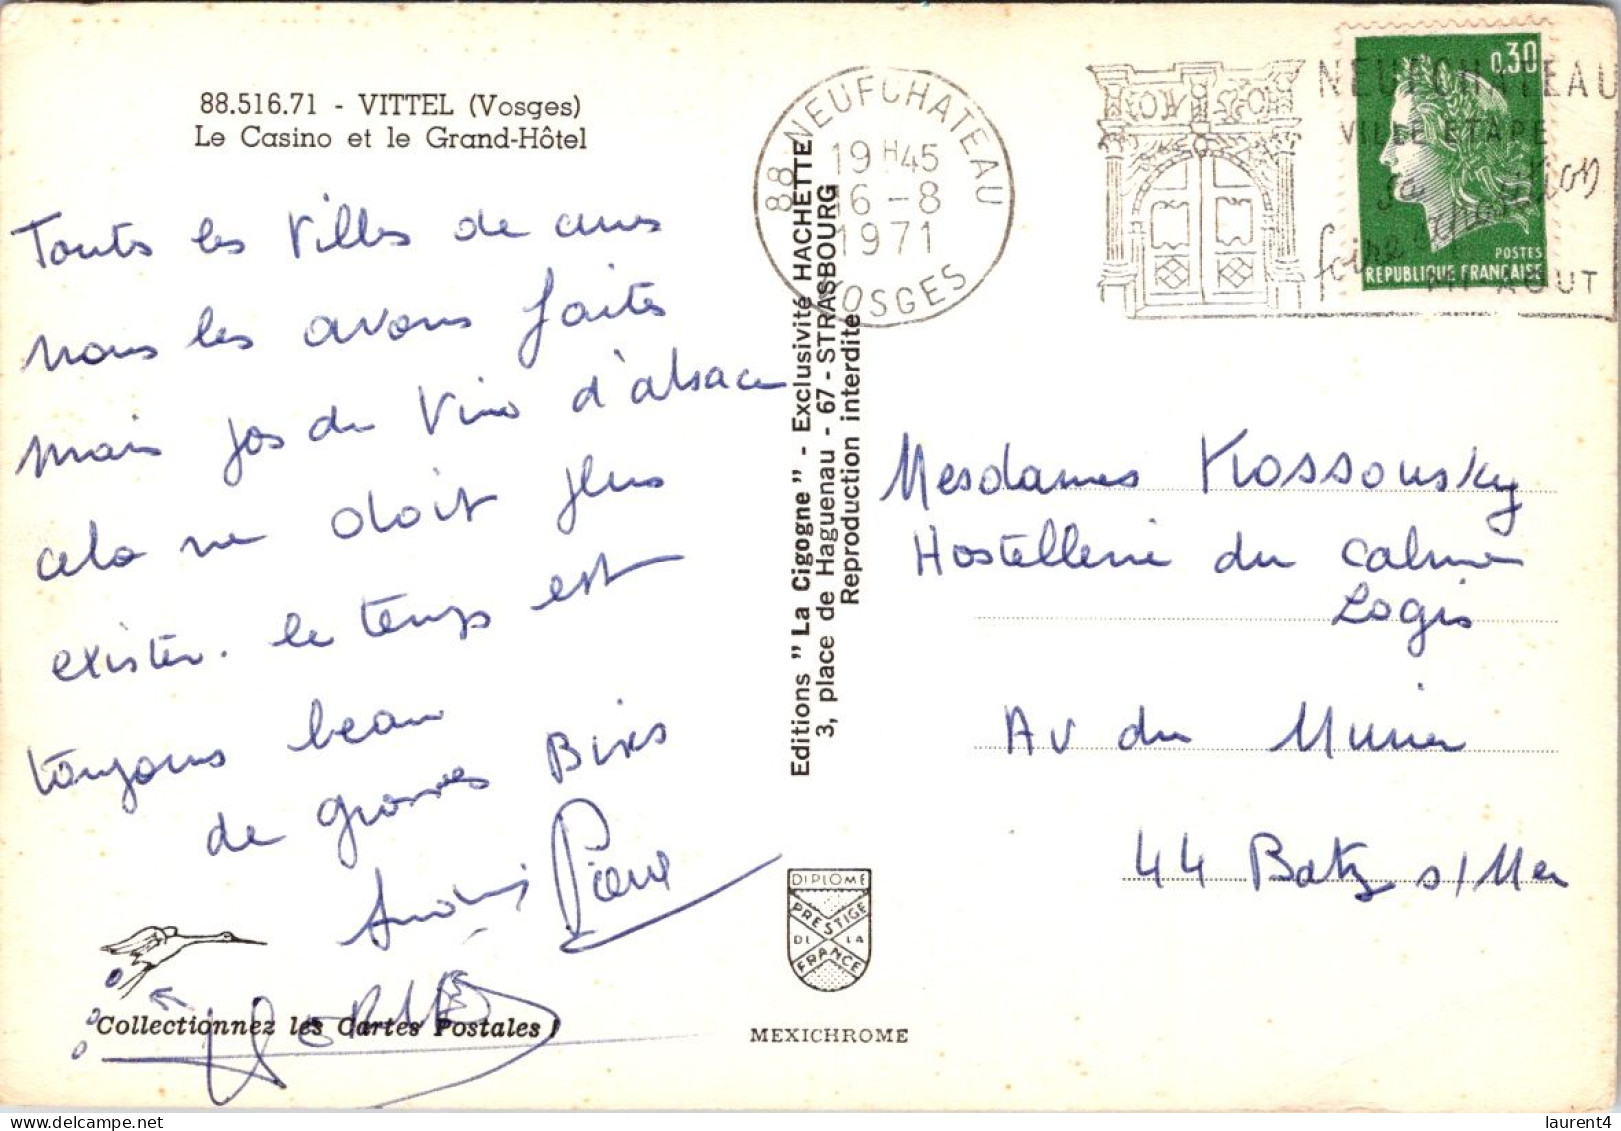 88.516.71 - VITTEL (Vosges)
Le Casino et le Grand-Hôtel
Toutes les Villes de cures
nous les avons faites
mais pas du Vin d'alsace
cela ne doit plus
exister. le temps est
toujours beau
de grosses Bises
Pierre
Collectionnez les Cartes Postales !
Editions " La Cigogne " - Exclusivité HACHETTE
3, place de Haguenau - 67 - STRASBOURG
Reproduction interdite
DIPLOME
PRESTIGE
DE LA
FRANCE
MEXICHROME
88 NEUFCHATEAU
19 H45
16 - 8
1971
VOSGES
NEUFCHATEAU
VILLE ETAPE
sa
foire exposition
MI-AOUT
0,30
POSTES
REPUBLIQUE FRANÇAISE
Mesdames Kossousky
Hostellerie du calme
Logis
Av du
44 Batz s/Mer
delcampe.net
laurent4